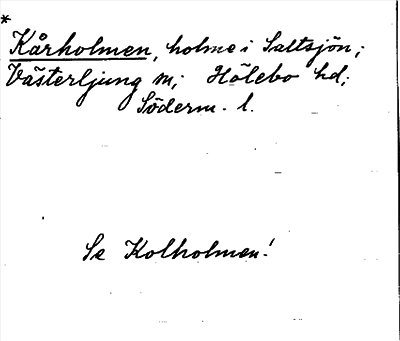 *
Kårholmen, holme i Saltsjön;
Västerljung sn; Hölebo hd;
Söderm. l.
Se Kolholmen!